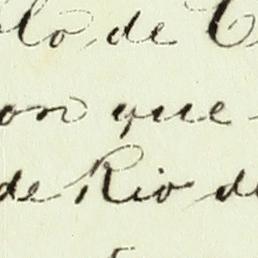 lo de C
on que
de Rio de